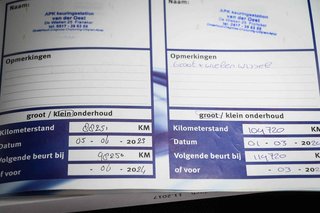 Naam:
APK keuringsstation
van der Geest
Opmerkingen
groot / klein onderhoud
Kilometerstand KM
Datum 05 - 06 - 2023
Volgende beurt bij KM
of voor - 06 - 2024
Naam:
APK keuringsstation
van der Geest
Opmerkingen
Groot + wielen wissel
groot / klein onderhoud
Kilometerstand 104720 KM
Datum 01 - 03 - 202
Volgende beurt bij 119720 KM
of voor - 03 - 202
11.2017